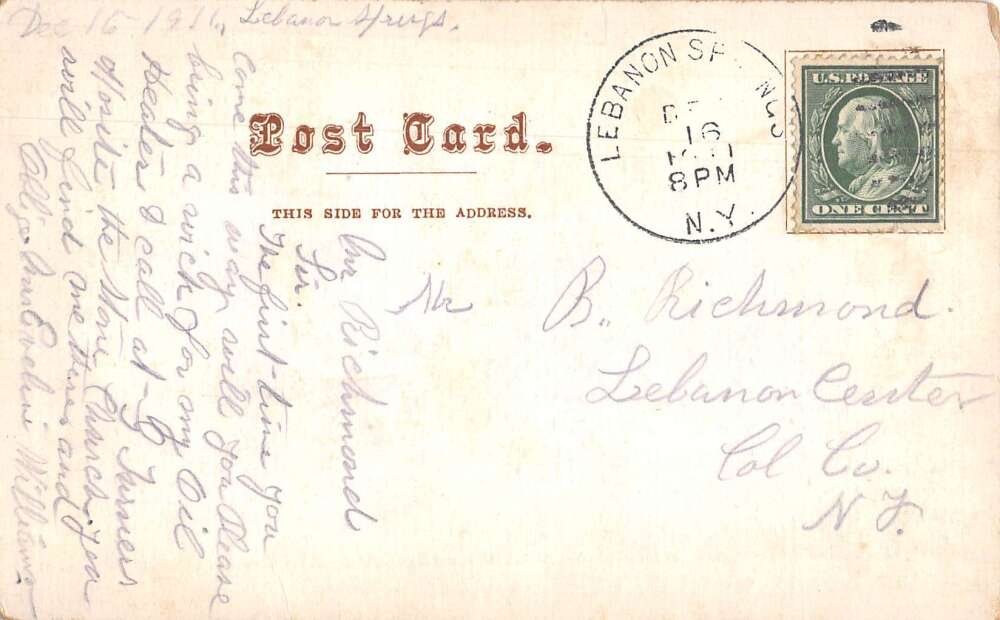 Dec 16 1911, Lebanon Springs.
Post Card.
THIS SIDE FOR THE ADDRESS.
LEBANON SP NGS
16
8 PM
N.Y.
U.S. POSTAGE
ONE CENT
Mr B. Richmond.
Lebanon Center
Col Co.
N Y.
Mr Richmond
Sir.
The first time you
come this way will you Please
bring a wick for my Oil
Heater & call at G Turners
oposite the stone Church. you
will find me there and
Mrs Williams